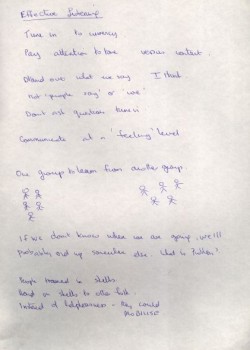 Effective listening
Tune in to
Pay attention to tone versus content
what we say I think
not 'people say' or 'we'
Don't ask question
Communicate at a 'feeling' level
One group to learn from another group
If we don't know where we are going, we'll
probably end up somewhere else. What is
People trained in skills
Hand on skills to other
Instead of helplessness - they could
MOBILISE